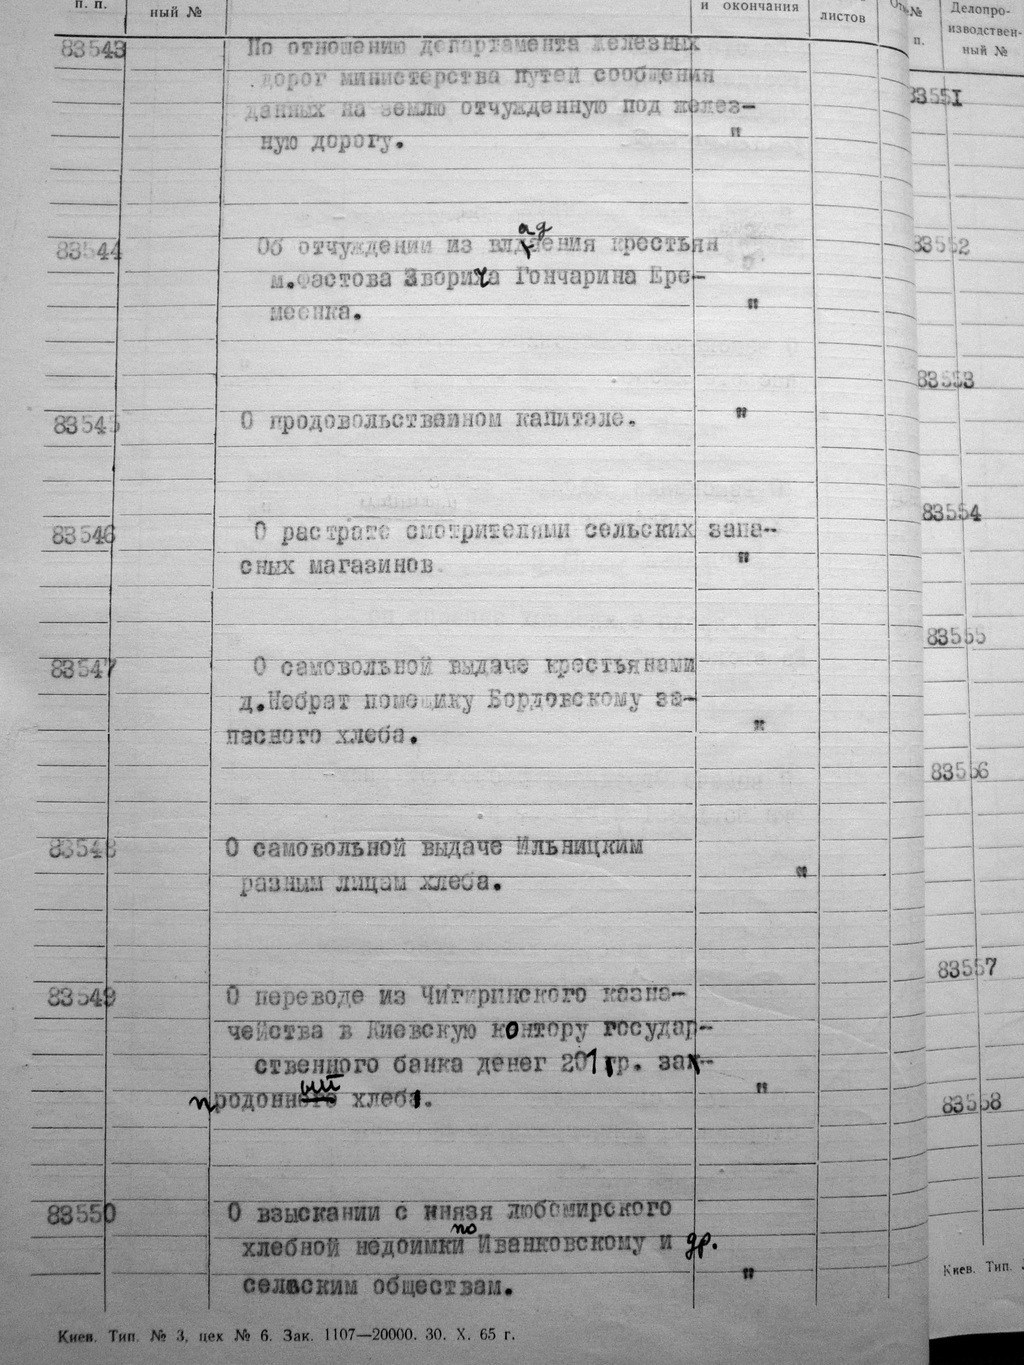 п. п.
ный №
и окончания
листов
83543 По отношению департамента железных
дорог министерства путей сообщения
данных на землю отчужденную под желез-
ную дорогу. "
ад
83544 Об отчуждении из владения крестьян
м.Фастова Зворича Гончарина Ере-
меенка. "
83545 О продовольственном капитале. "
83546 О растрате смотрителями сельских запа-
сных магазинов. "
83547 О самовольной выдаче крестьянами
д.Небрат помещику Бордовскому за-
пасного хлеба. "
83548 О самовольной выдаче Ильницким
разным лицам хлеба. "
83549 О переводе из Чигиринского казна-
чейства в Киевскую контору государ-
ственного банка денег 201 гр. за
ный
проданный хлеб. "
83550 О взыскании с князя любомирского
по
хлебной недоимки Иванковскому и др.
селвским обществам. "
Киев. Тип. № 3, цех № 6. Зак. 1107—20000. 30. X. 65 г.
№
п.
Делопро-
изводствен-
ный №
83551
83552
83553
83554
83555
83556
83557
83558
Киев. Тип.